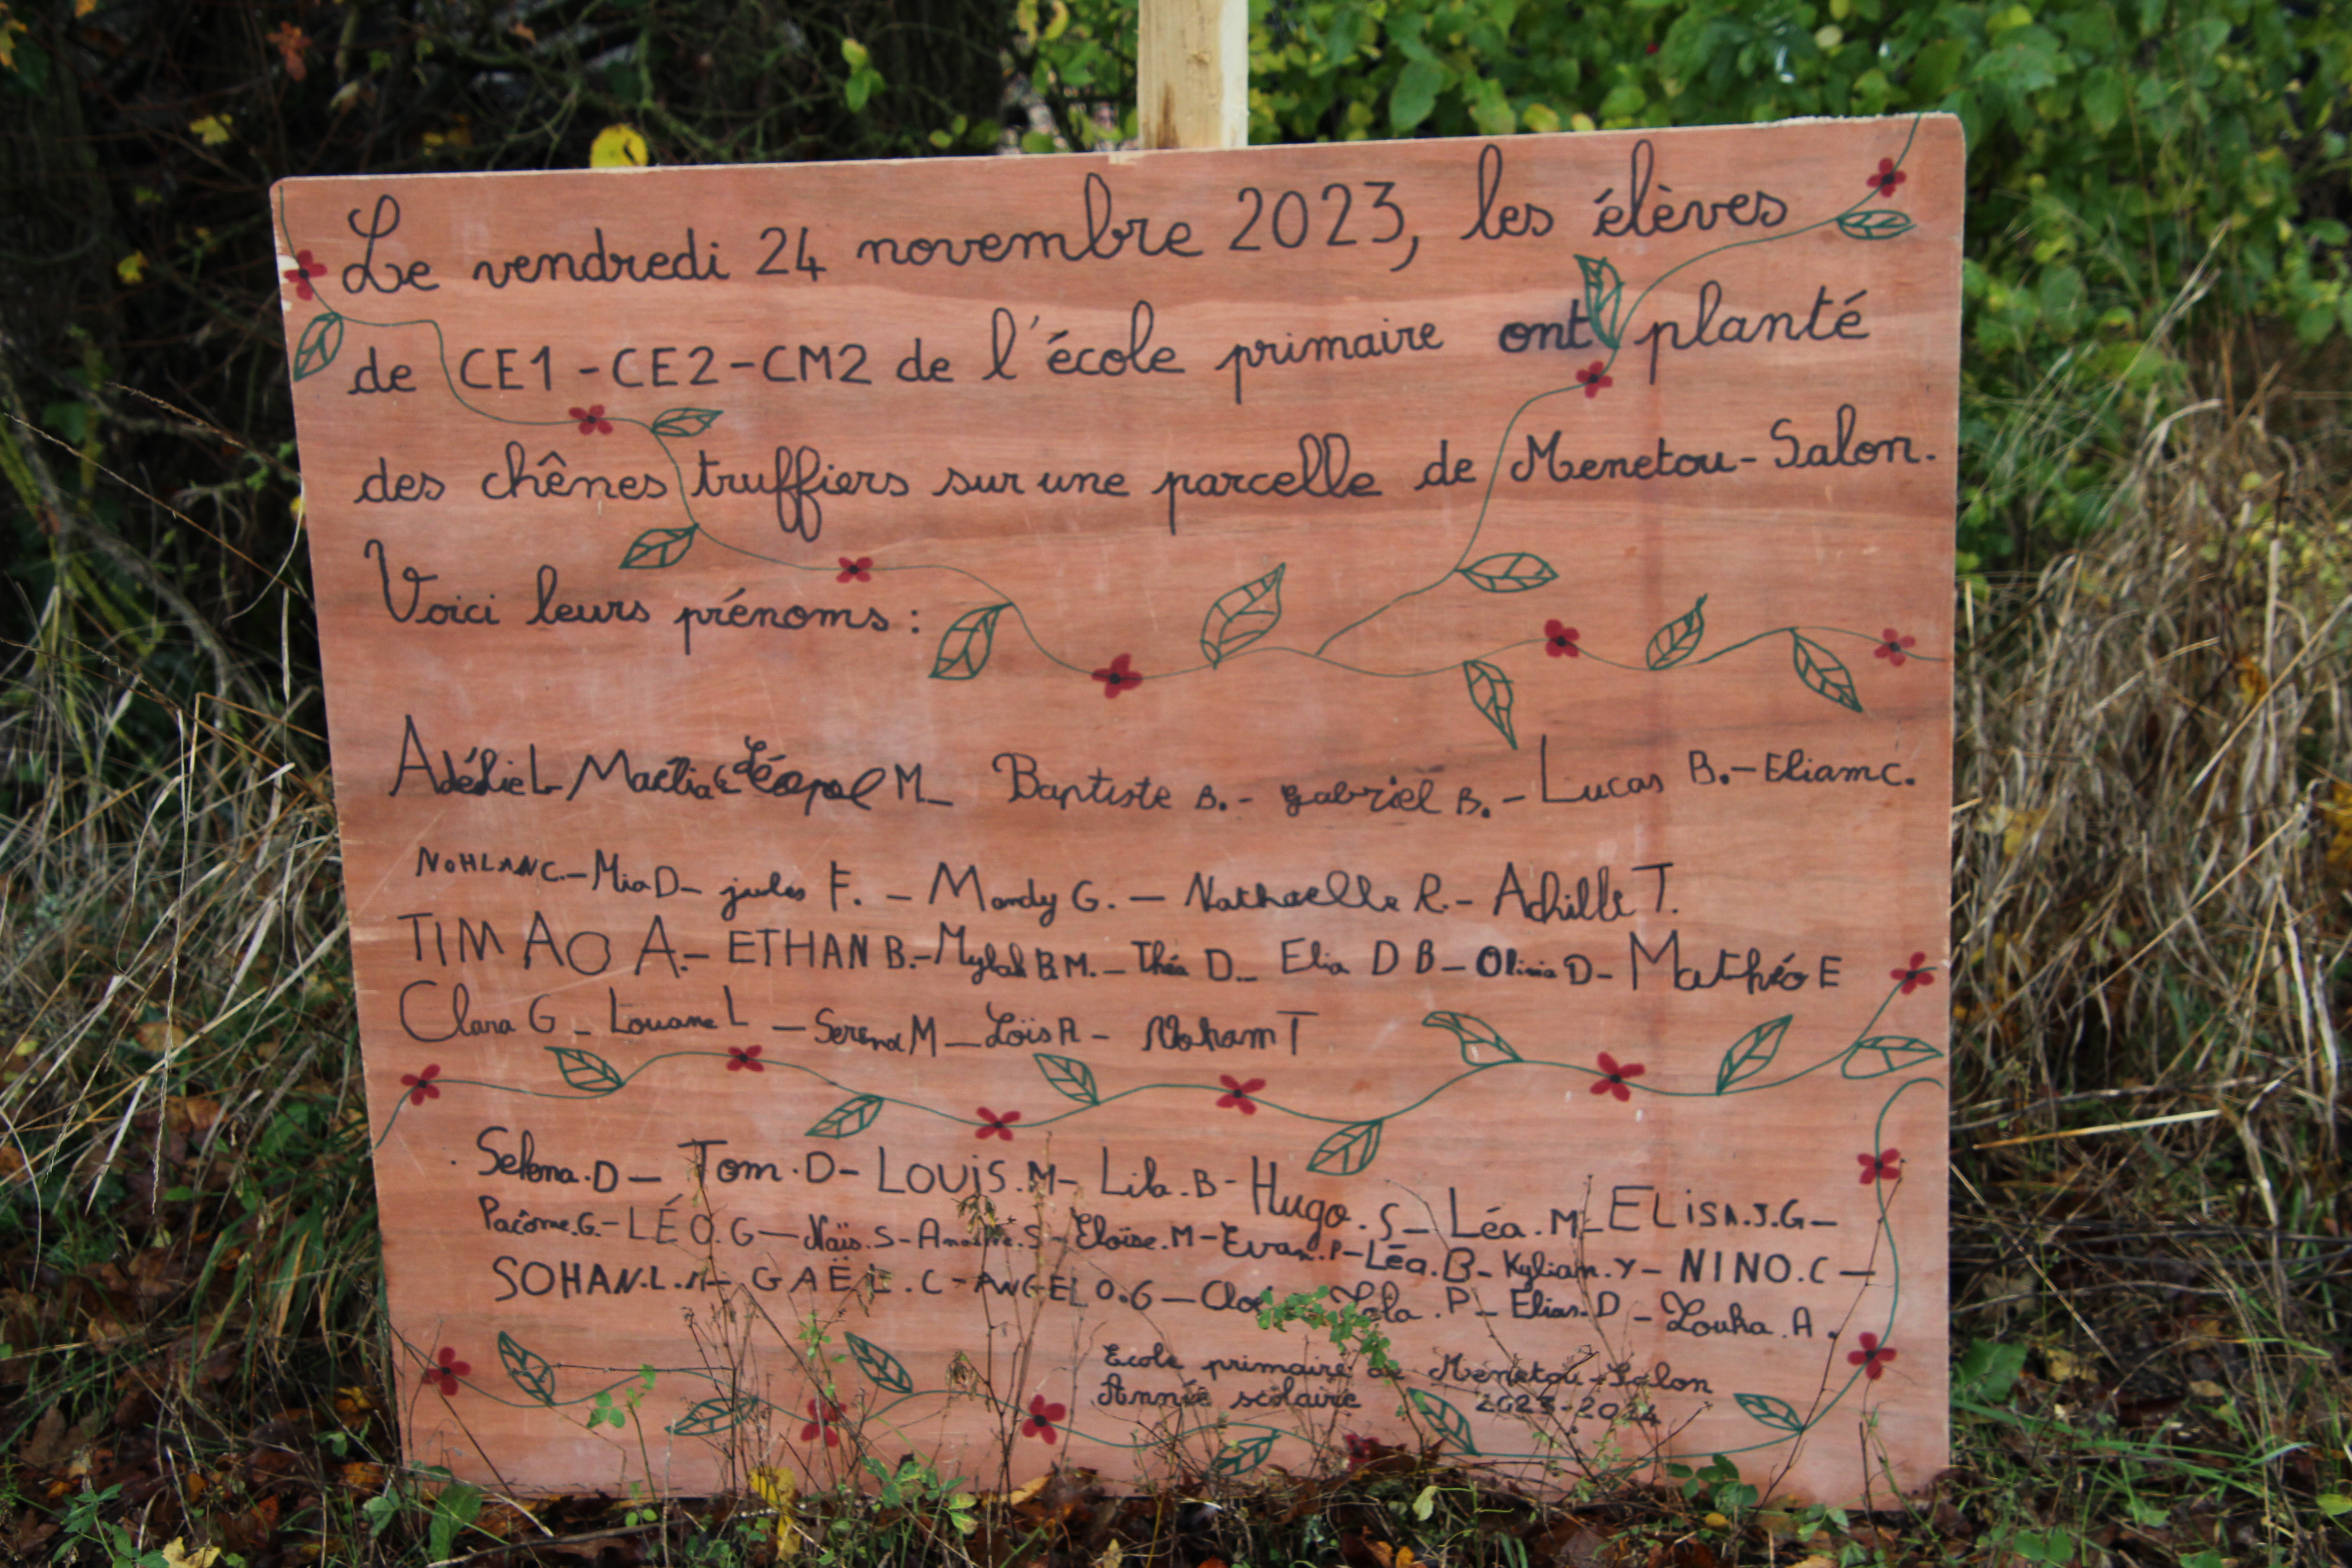 Le vendredi 24 novembre 2023, les élèves
de CE1-CE2-CM2 de l'école primaire ont planté
des chênes truffiers sur une parcelle de Menetou-Salon.
Voici leurs prénoms :
Adélie L- Maëlia Léopol M_ Baptiste B.- gabriel B.- Lucas B.- Eliam C.
NOHLAN C.- Mia D- jules F. - Mandy G. - Nathaelle R.- Achille T.
TIMAO A.- ETHAN B.- Mylah B.M.- Théa D_ Elia D B- Olivia D- Mathéo E
Clara G_ Louane L - Serena M_ Loïs R- Noham T
Selena.D- Tom.D- LOUIS.M- Lila.B- Hugo.S- Léa.M- ELISA.J.G-
Pacôme.G.- LÉO.G- Naïs.S- Eloïse.M- Evan.P- Léa.B- Kylian.Y- NINO.C-
SOHAN.L.- GAËL.C- ANGELO.G- Lola.P- Elias.D- Louka.A.
Ecole primaire de Menetou-Salon
Année scolaire 2023-2024